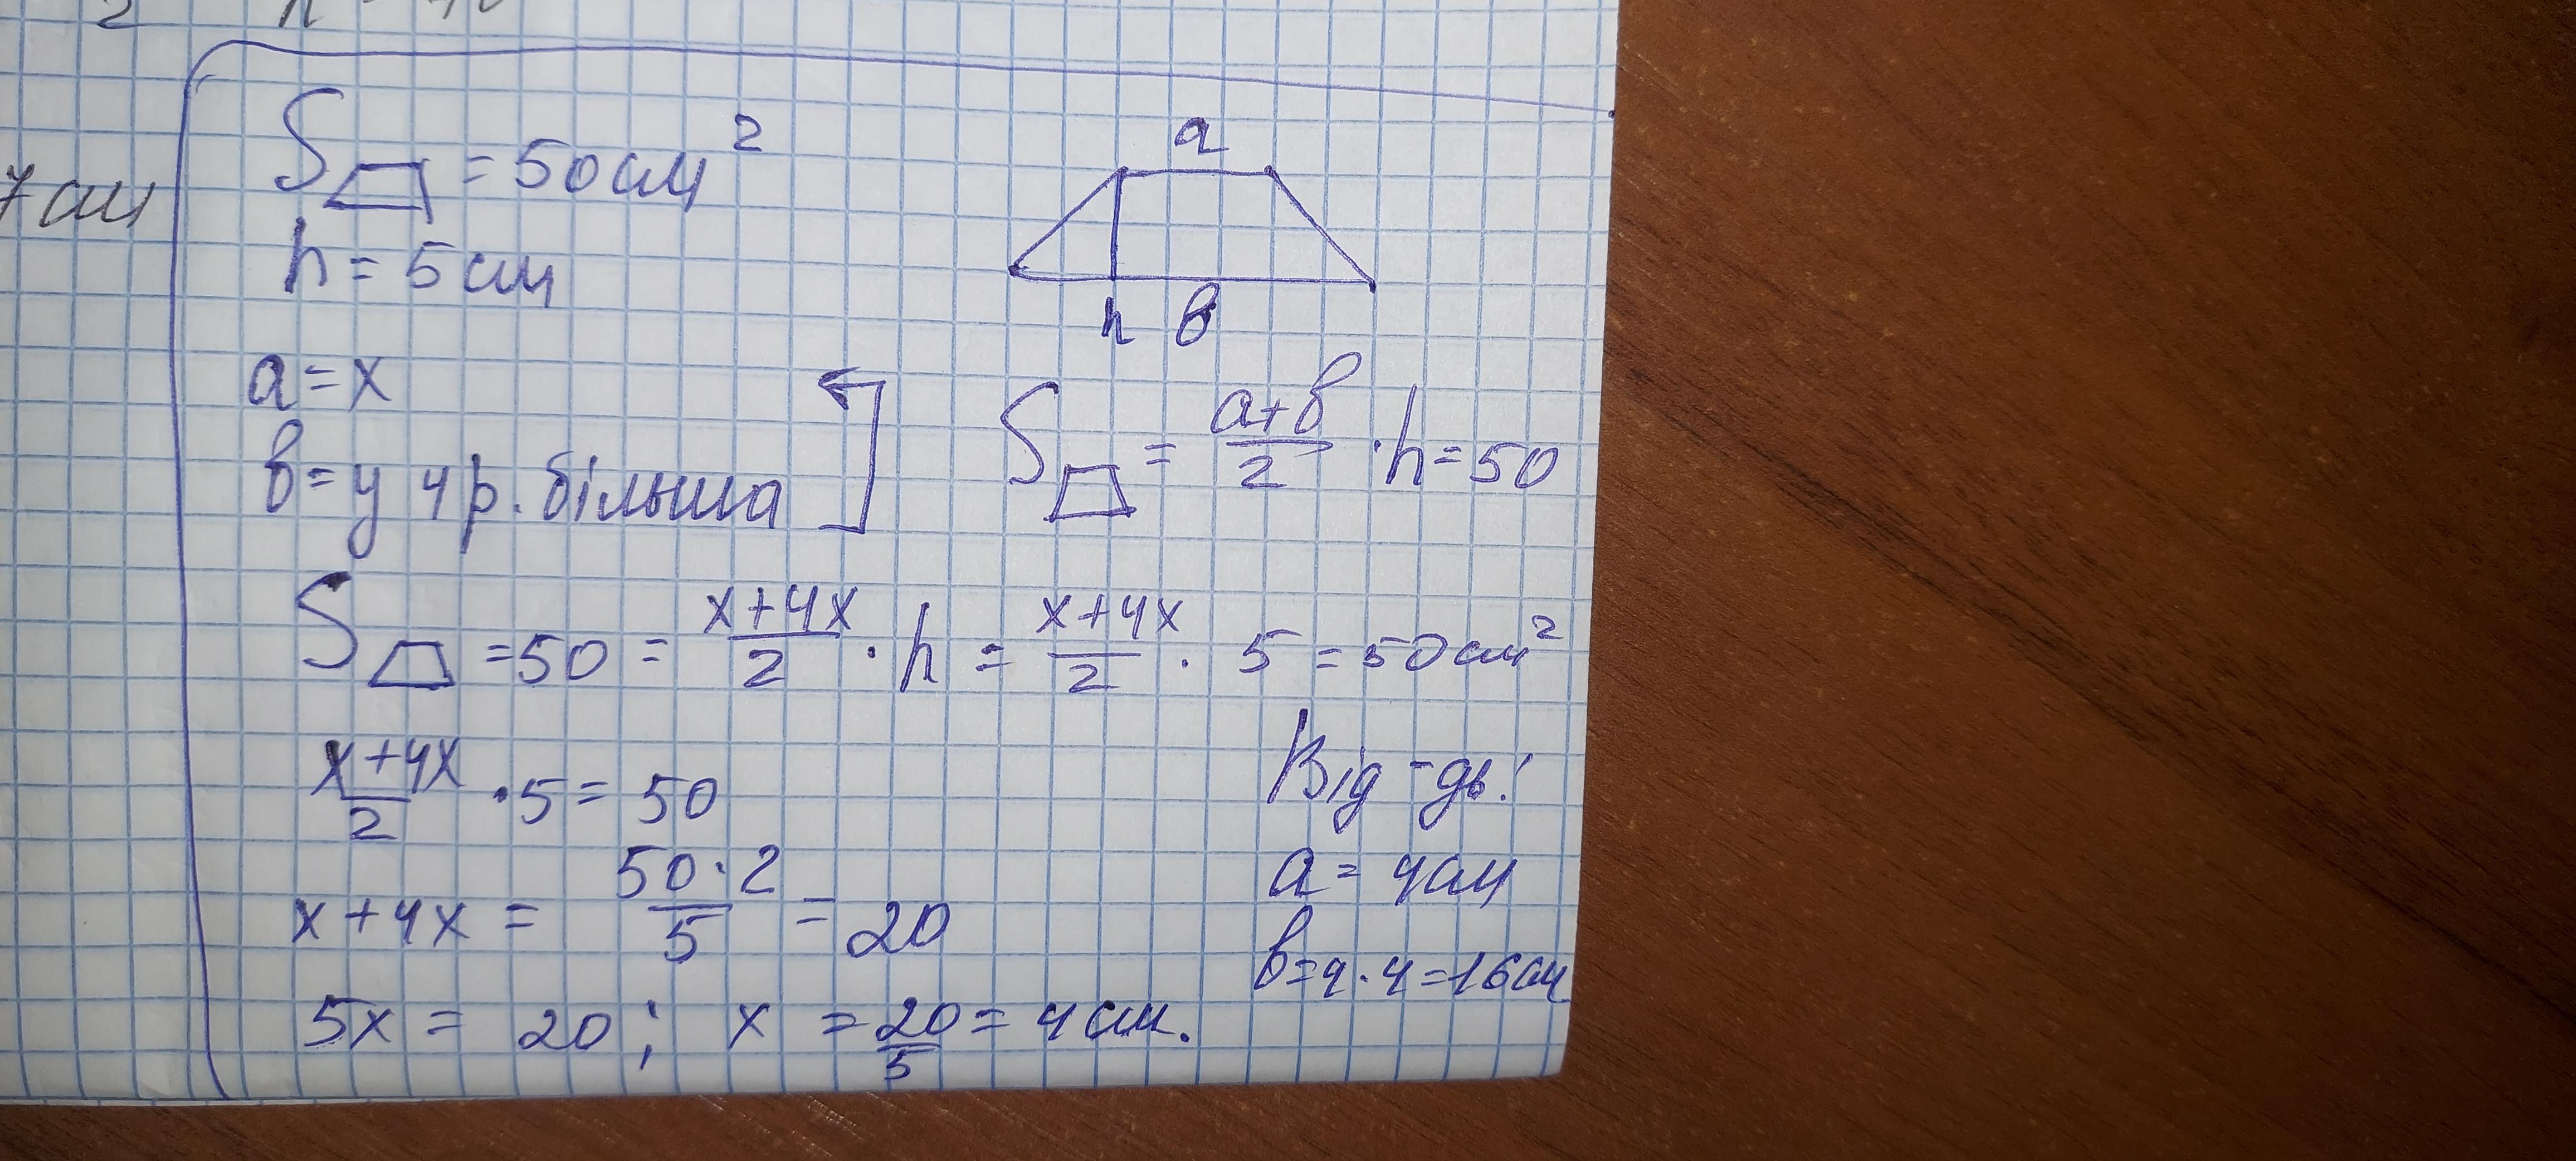 7 см
S = 50 см²
h = 5 см
a
h в
a = x
в = у 4 р. більша
S = (a+в)/2 · h = 50
S = 50 = (x+4x)/2 · h = (x+4x)/2 · 5 = 50 см²
(x+4x)/2 · 5 = 50
x + 4x = (50·2)/5 = 20
5x = 20 ; x = 20/5 = 4 см.
Від-дь:
a = 4 см
в = 4·4 = 16 см